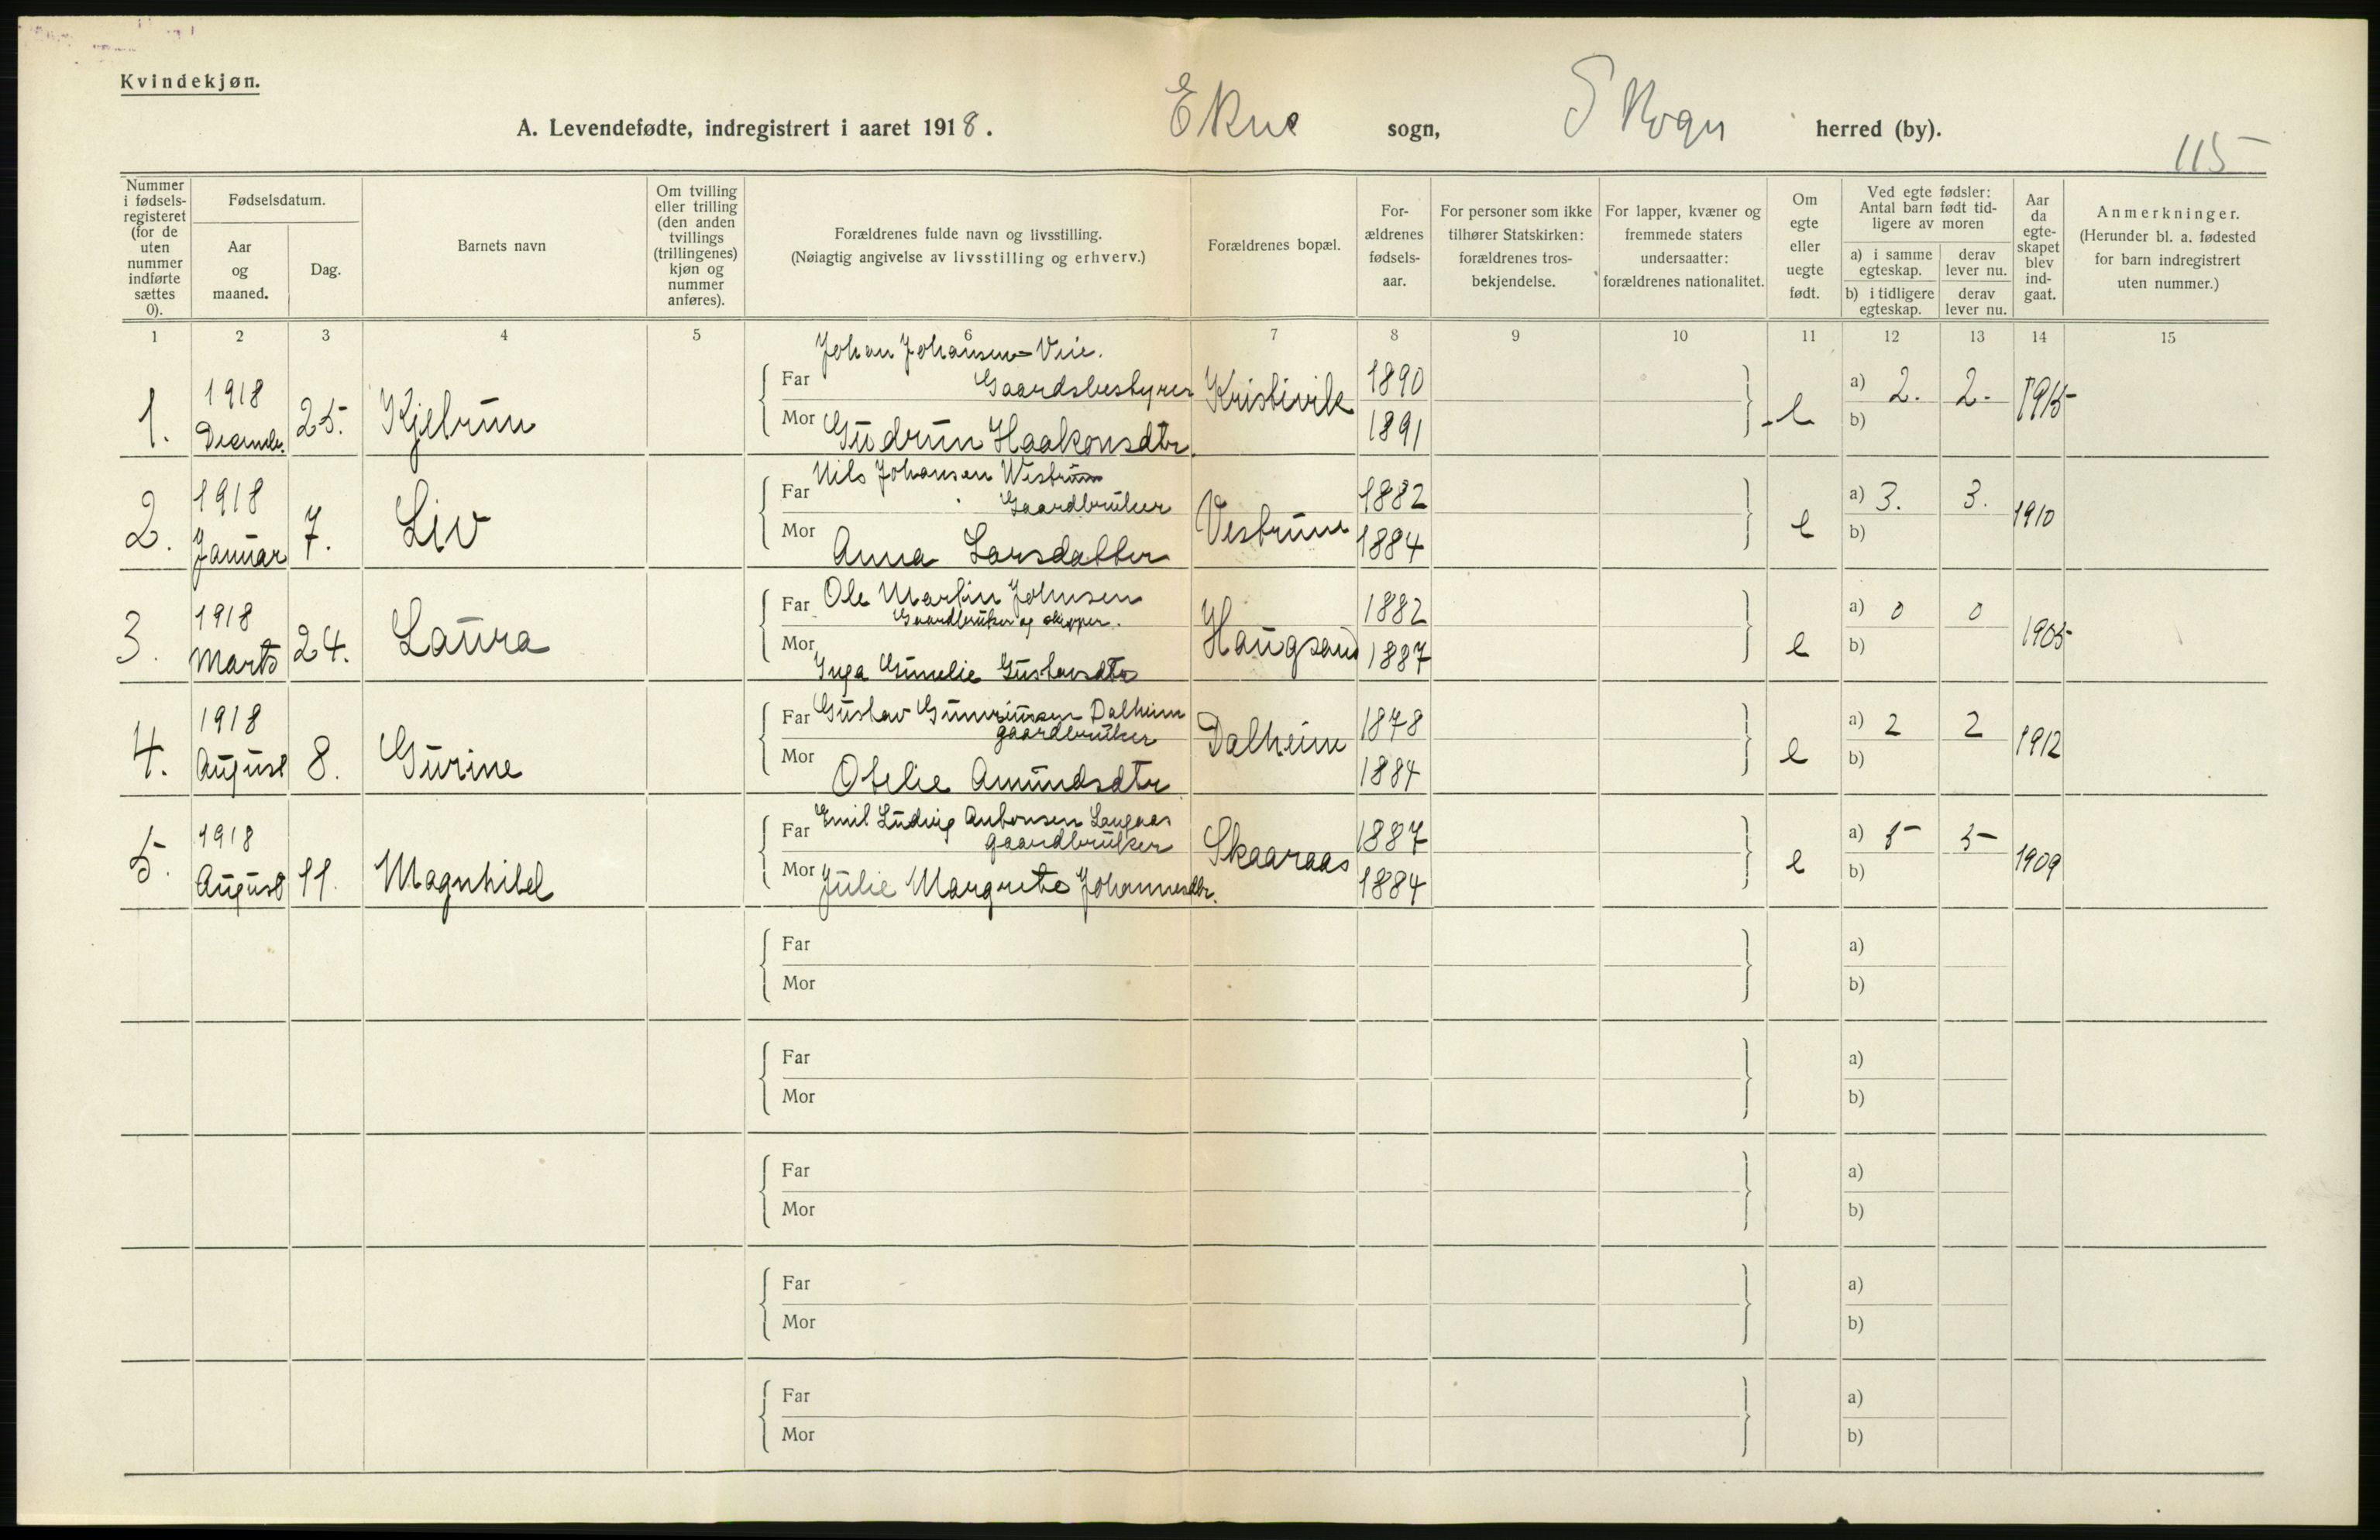 Kvindekjøn.
A. Levendefødte, indregistrert i aaret 1918. Ekne sogn, Skogn herred (by).
115
Nummer i fødselsregisteret (for de uten nummer indførte sættes 0).
Fødselsdatum.
Aar og maaned.
Dag.
Barnets navn
Om tvilling eller trilling (den anden tvillings (trillingenes) kjøn og nummer anføres).
Forældrenes fulde navn og livsstilling.
(Nøiagtig angivelse av livsstilling og erhverv.)
Forældrenes bopæl.
Forældrenes fødselsaar.
For personer som ikke tilhører Statskirken: forældrenes trosbekjendelse.
For lapper, kvæner og fremmede staters undersaatter: forældrenes nationalitet.
Om egte eller uegte født.
Ved egte fødsler: Antal barn født tidligere av moren
a) i samme egteskap.
derav lever nu.
b) i tidligere egteskap.
derav lever nu.
Aar da egteskapet blev indgaat.
Anmerkninger.
(Herunder bl. a. fødested for barn indregistrert uten nummer.)
1 2 3 4 5 6 7 8 9 10 11 12 13 14 15
1. 1918 Decembr. 25. Kjelrun
Far Johan Johansen Veie. Gaardsbestyrer Kristivik 1890
Mor Gudrun Haakonsdtr. 1891 e a) 2. 2. 1915
b)
2. 1918 Januar 7. Liv
Far Nils Johansen Vestrum Gaardbruker Vestrum 1882
Mor Anna Larsdatter 1884 e a) 3. 3. 1910
b)
3. 1918 Marts 24. Laura
Far Ole Martin Johnsen Gaardbruker og skipper. Haugsand 1882
Mor Inga Gustavsdtr 1887 e a) 0 0 1905
b)
4. 1918 August 8. Gurine
Far Gustav Dalheim gaardbruker Dalheim 1878
Mor Otelie Amundsdtr 1884 e a) 2 2 1912
b)
5. 1918 August 11. Magnhild
Far Emil Ludvig Antonsen Langaas gaardbruker Skaaraas 1887
Mor Julie Margrete Johannesdtr. 1884 e a) 5 5 1909
b)
Far a)
Mor b)
Far a)
Mor b)
Far a)
Mor b)
Far a)
Mor b)
Far a)
Mor b)